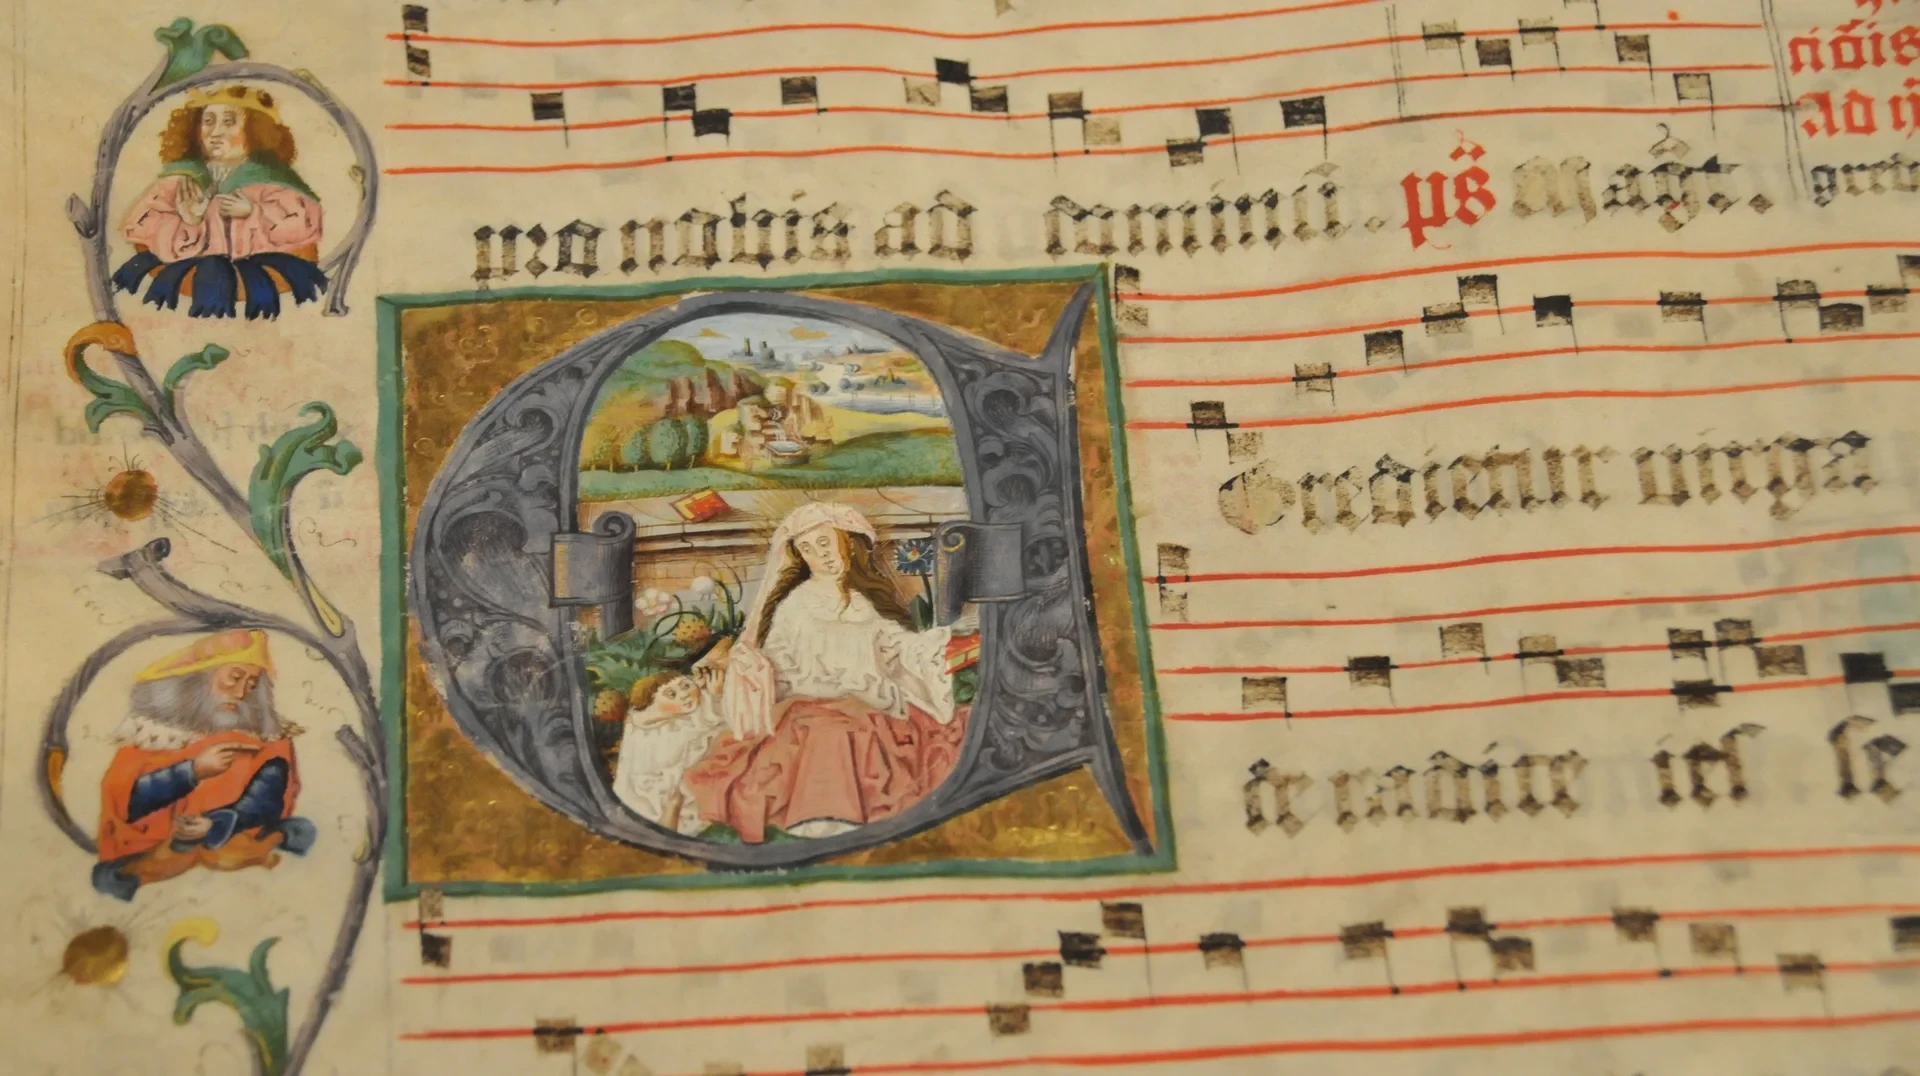 pro nobis ad dominū. ps̄ Mag̅t.
ciōis
Ad
E
Gredietur uirga
de radice ies se